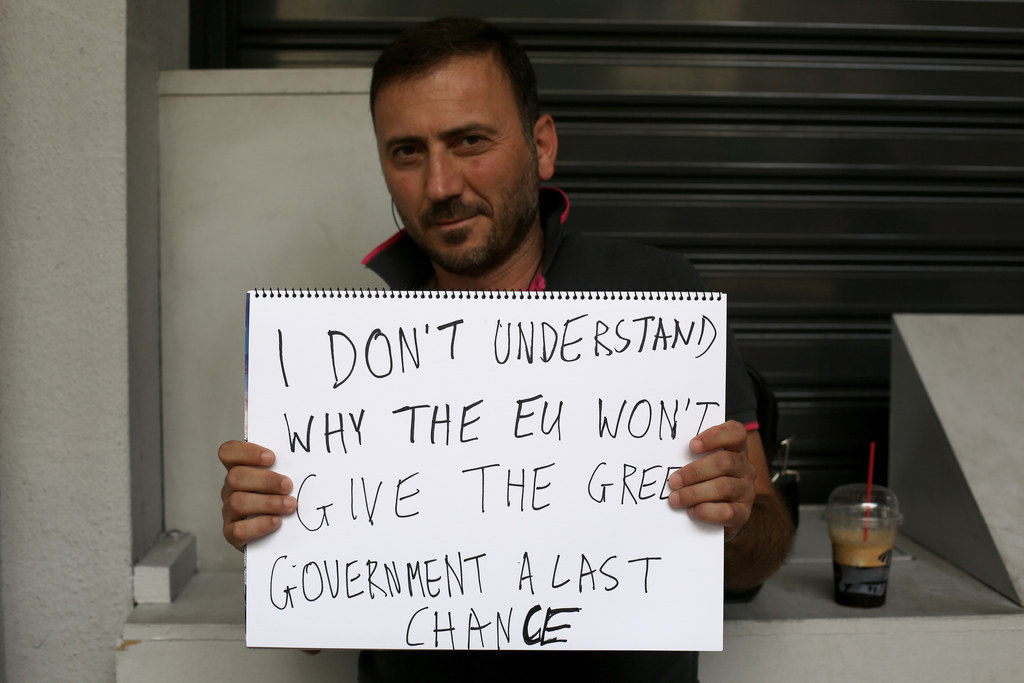 I DON'T UNDERSTAND
WHY THE EU WON'T
GIVE THE GREE
GOVERNMENT A LAST
CHANCE